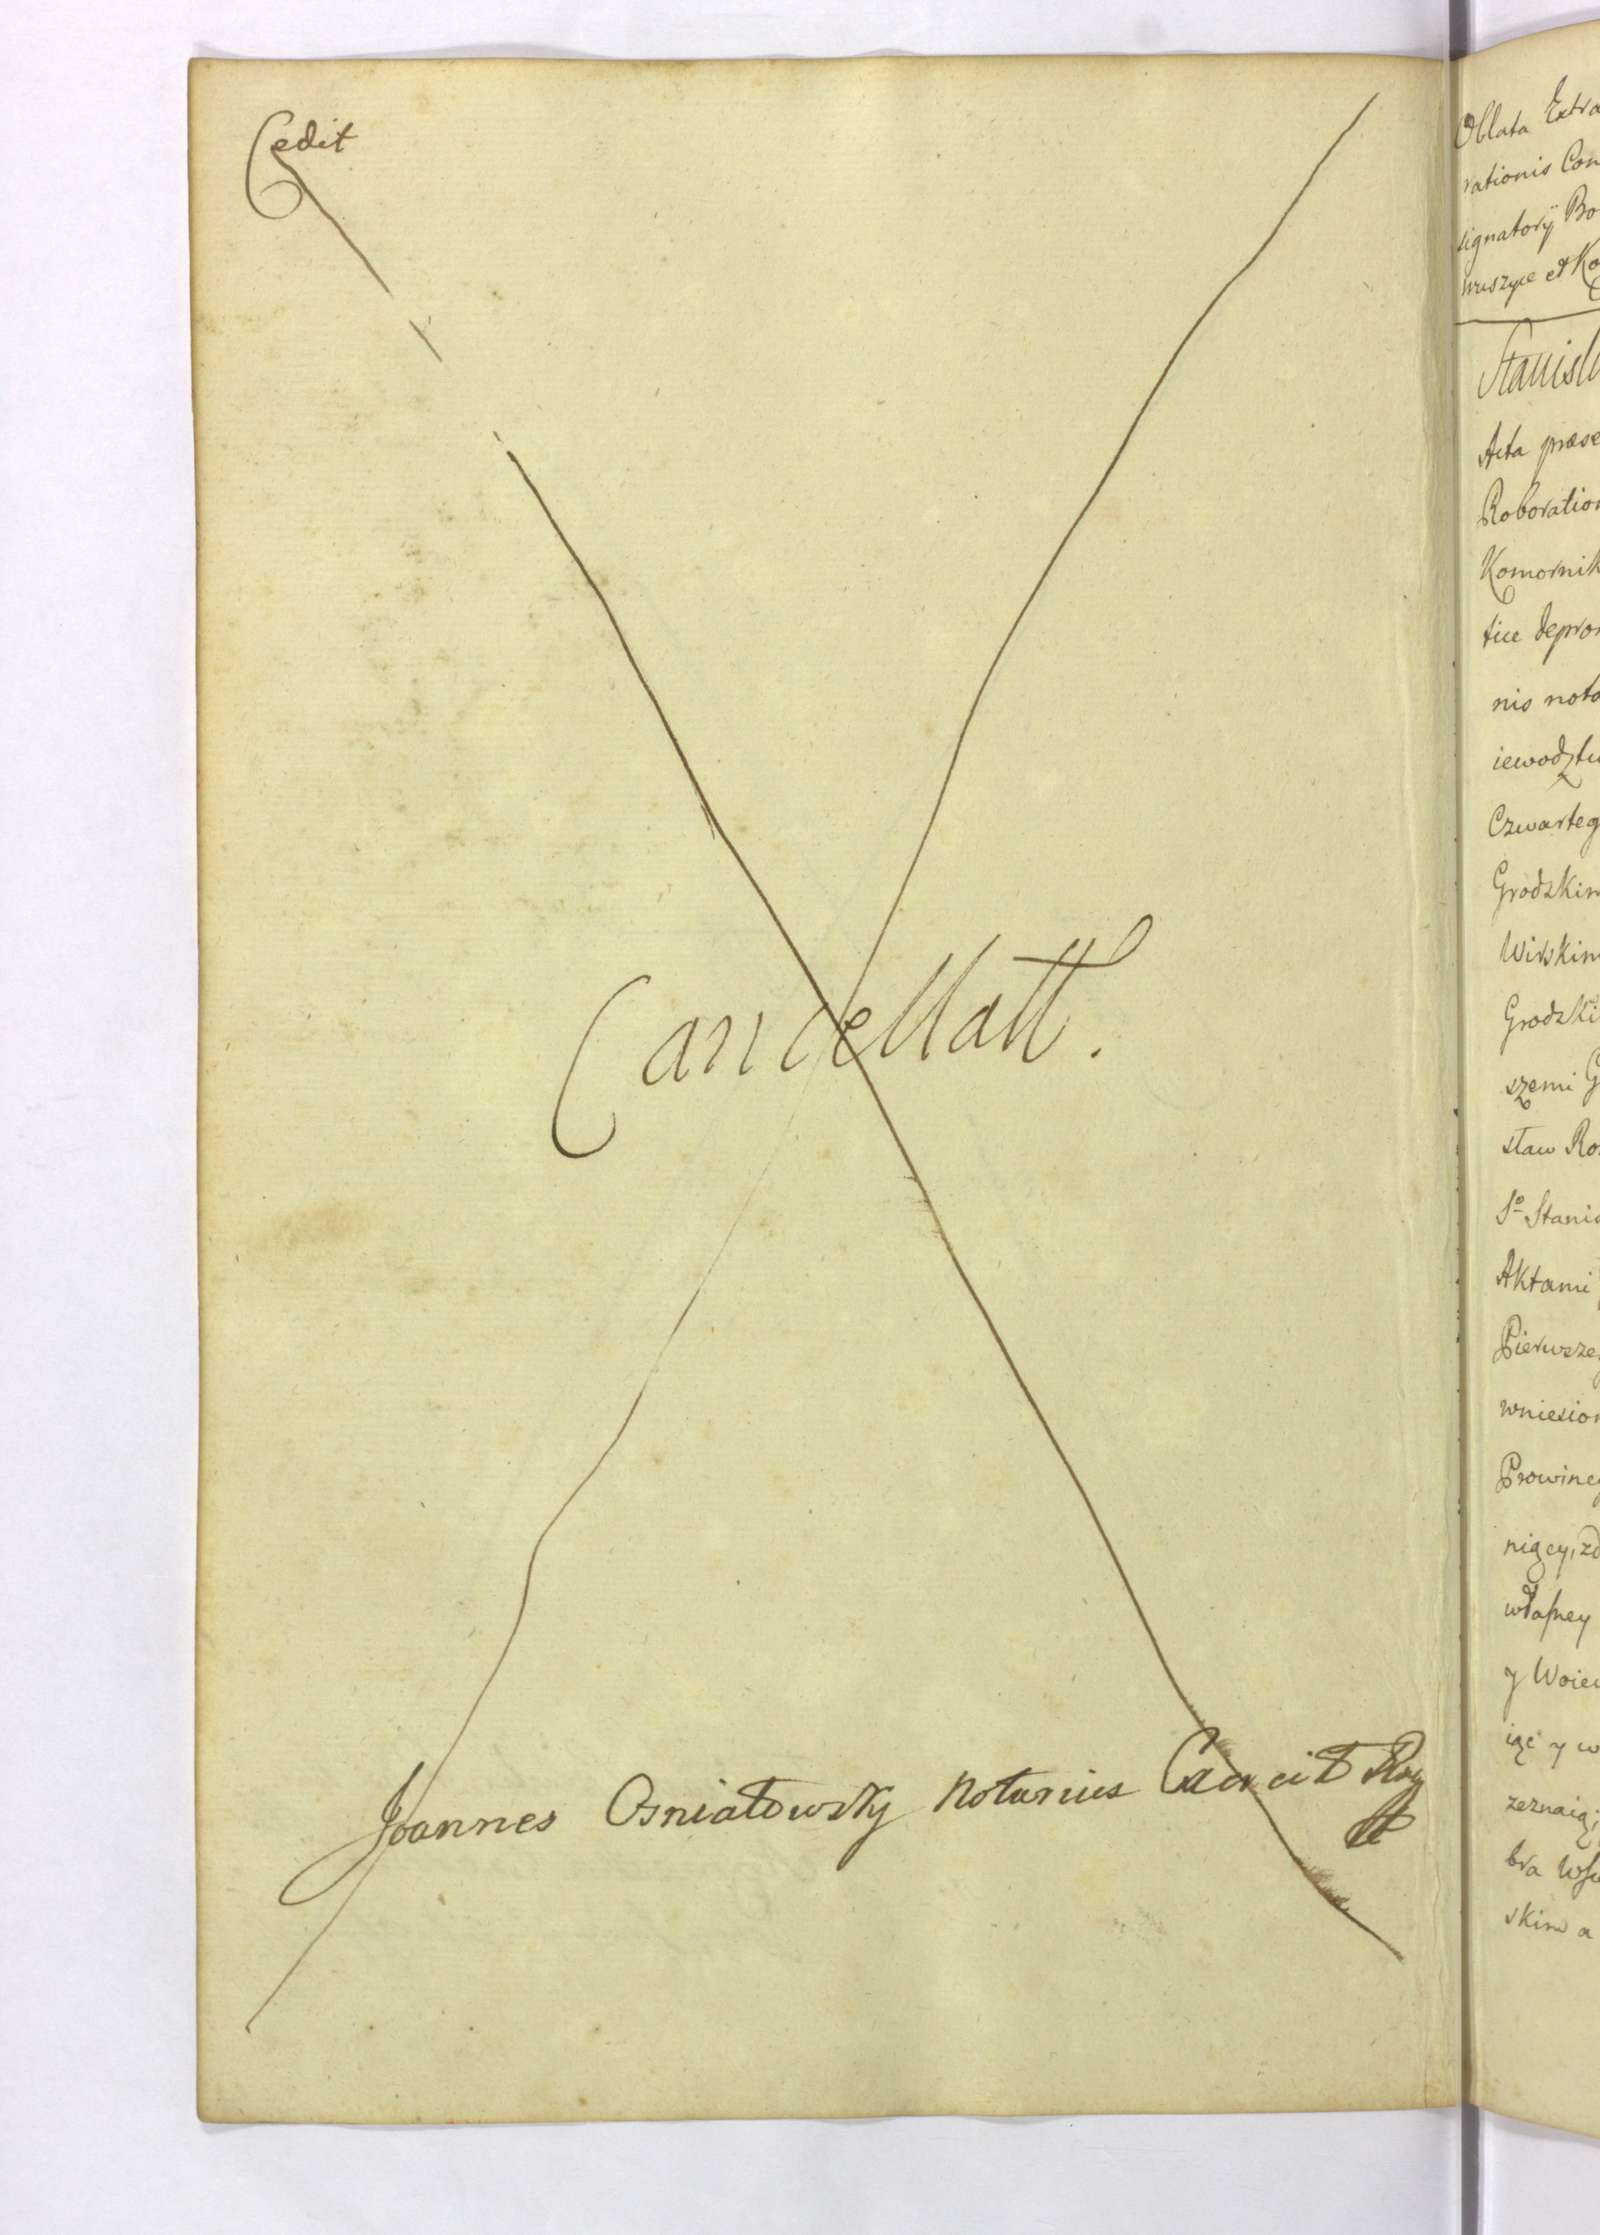 Cedit
Cancellatt.
Joannes Osniałowsky Notarius
Oblata Extra
rationis Con
signatorÿ Bo
wuszyce et Ko
Stanisł
Acta præse
Roboration
Komornik
tice depro
nis nota
iewodztw
Czwarteg
Grodzkim
Wirskim
Grodzki
szemi G
sław Ro
So Stanis
Aktami
Pierwsze
wniesion
Prowincy
niący, zd
własney
y Woie
iąc y w
zeznaią;
bra Wsi
skim a